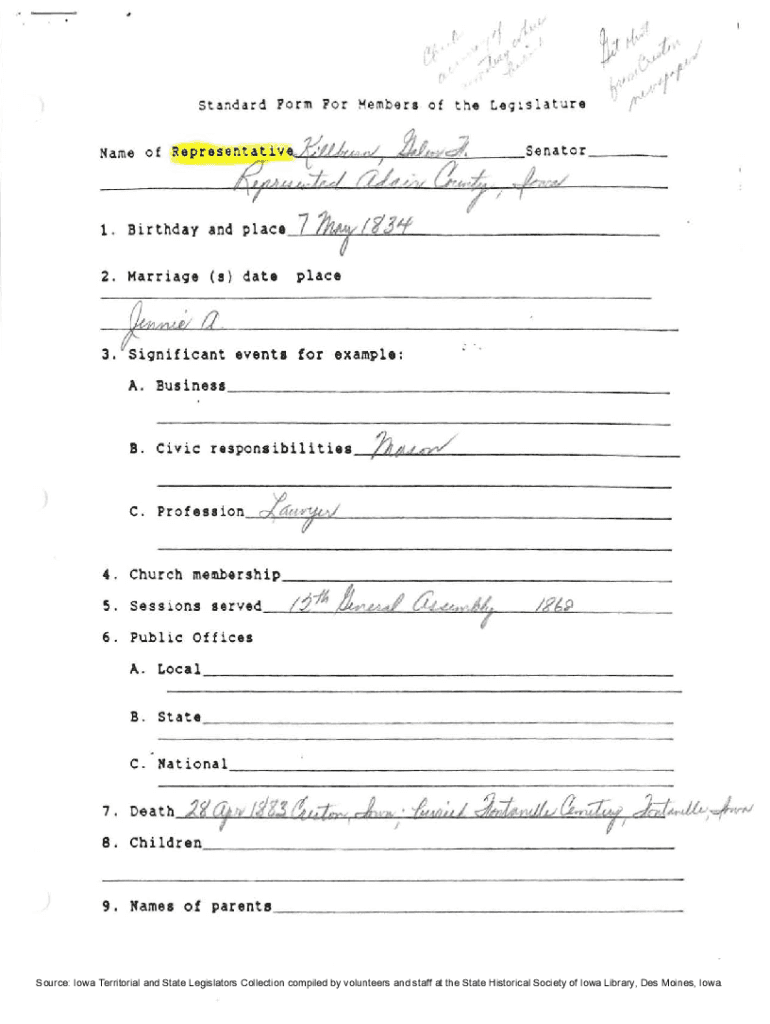 Check
accuracy of
where
buried
Get Obit
from Creston
newspaper
Standard Form For Members of the Legislature
Name of Representative Killburn, Galen F. Senator
Represented Adair County, Iowa
1. Birthday and place 7 May 1834
2. Marriage (s) date place
Jennie A.
3. Significant events for example:
A. Business
B. Civic responsibilities Mason
C. Profession Lawyer
4. Church membership
5. Sessions served 12th General Assembly 1868
6. Public Offices
A. Local
B. State
C. National
7. Death 28 Apr 1883 Creston, Iowa; buried Fontanelle Cemetery, Fontanelle, Iowa
8. Children
9. Names of parents
Source: Iowa Territorial and State Legislators Collection compiled by volunteers and staff at the State Historical Society of Iowa Library, Des Moines, Iowa